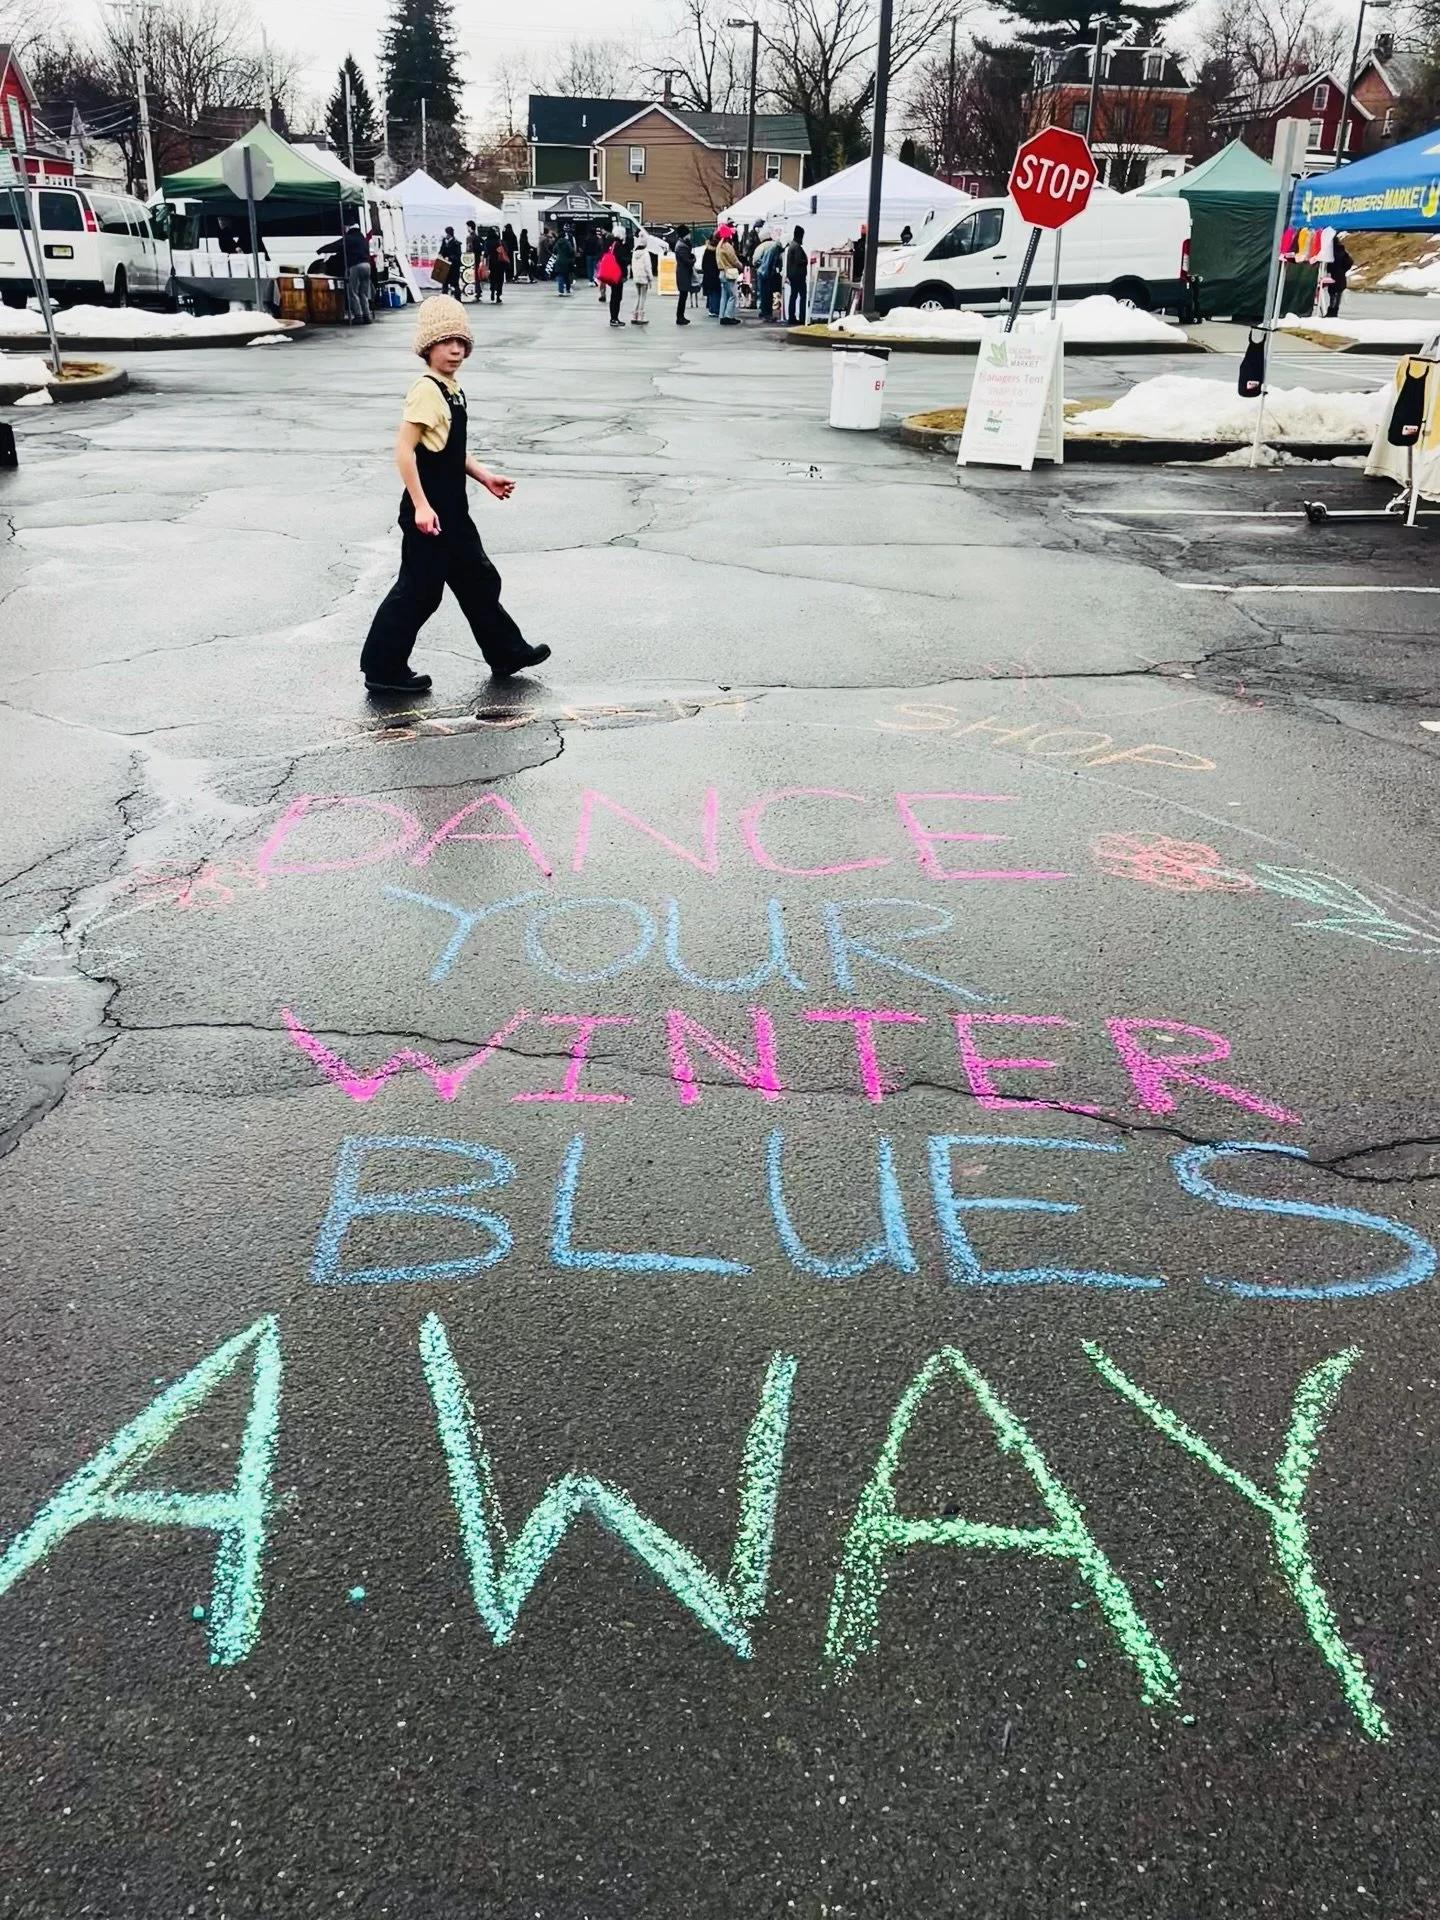 STOP
BEACON FARMERS MARKET
BEACON
FARMERS
MARKET
Managers Tent
SHOP
DANCE
YOUR
WINTER
BLUES
AWAY